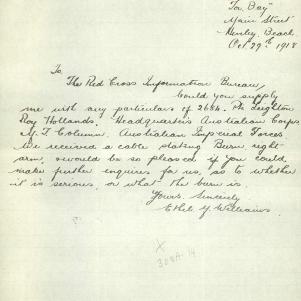 "Tor Bay"
Main Street
Henley Beach
Oct 29th 1918
To
The Red Cross Information Bureau,
Could you supply
me with any particulars of 2684. Pte Leighton
Roy Hollands. Headquarters Australian Corps
M.T Column. Australian Imperial Forces.
We received a cable stating Burn right
arm, & would be so pleased if you could
make further enquires for us, as to whether
it is serious, or what the burn is.
Yours Sincerely
Ethel Y Williams.